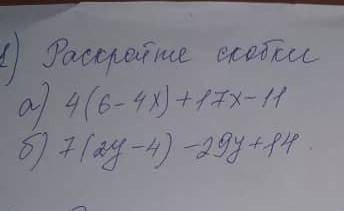 1) Раскройте скобки
а) 4(6-4x)+17x-11
б) 7(2y-4) -29y+14.